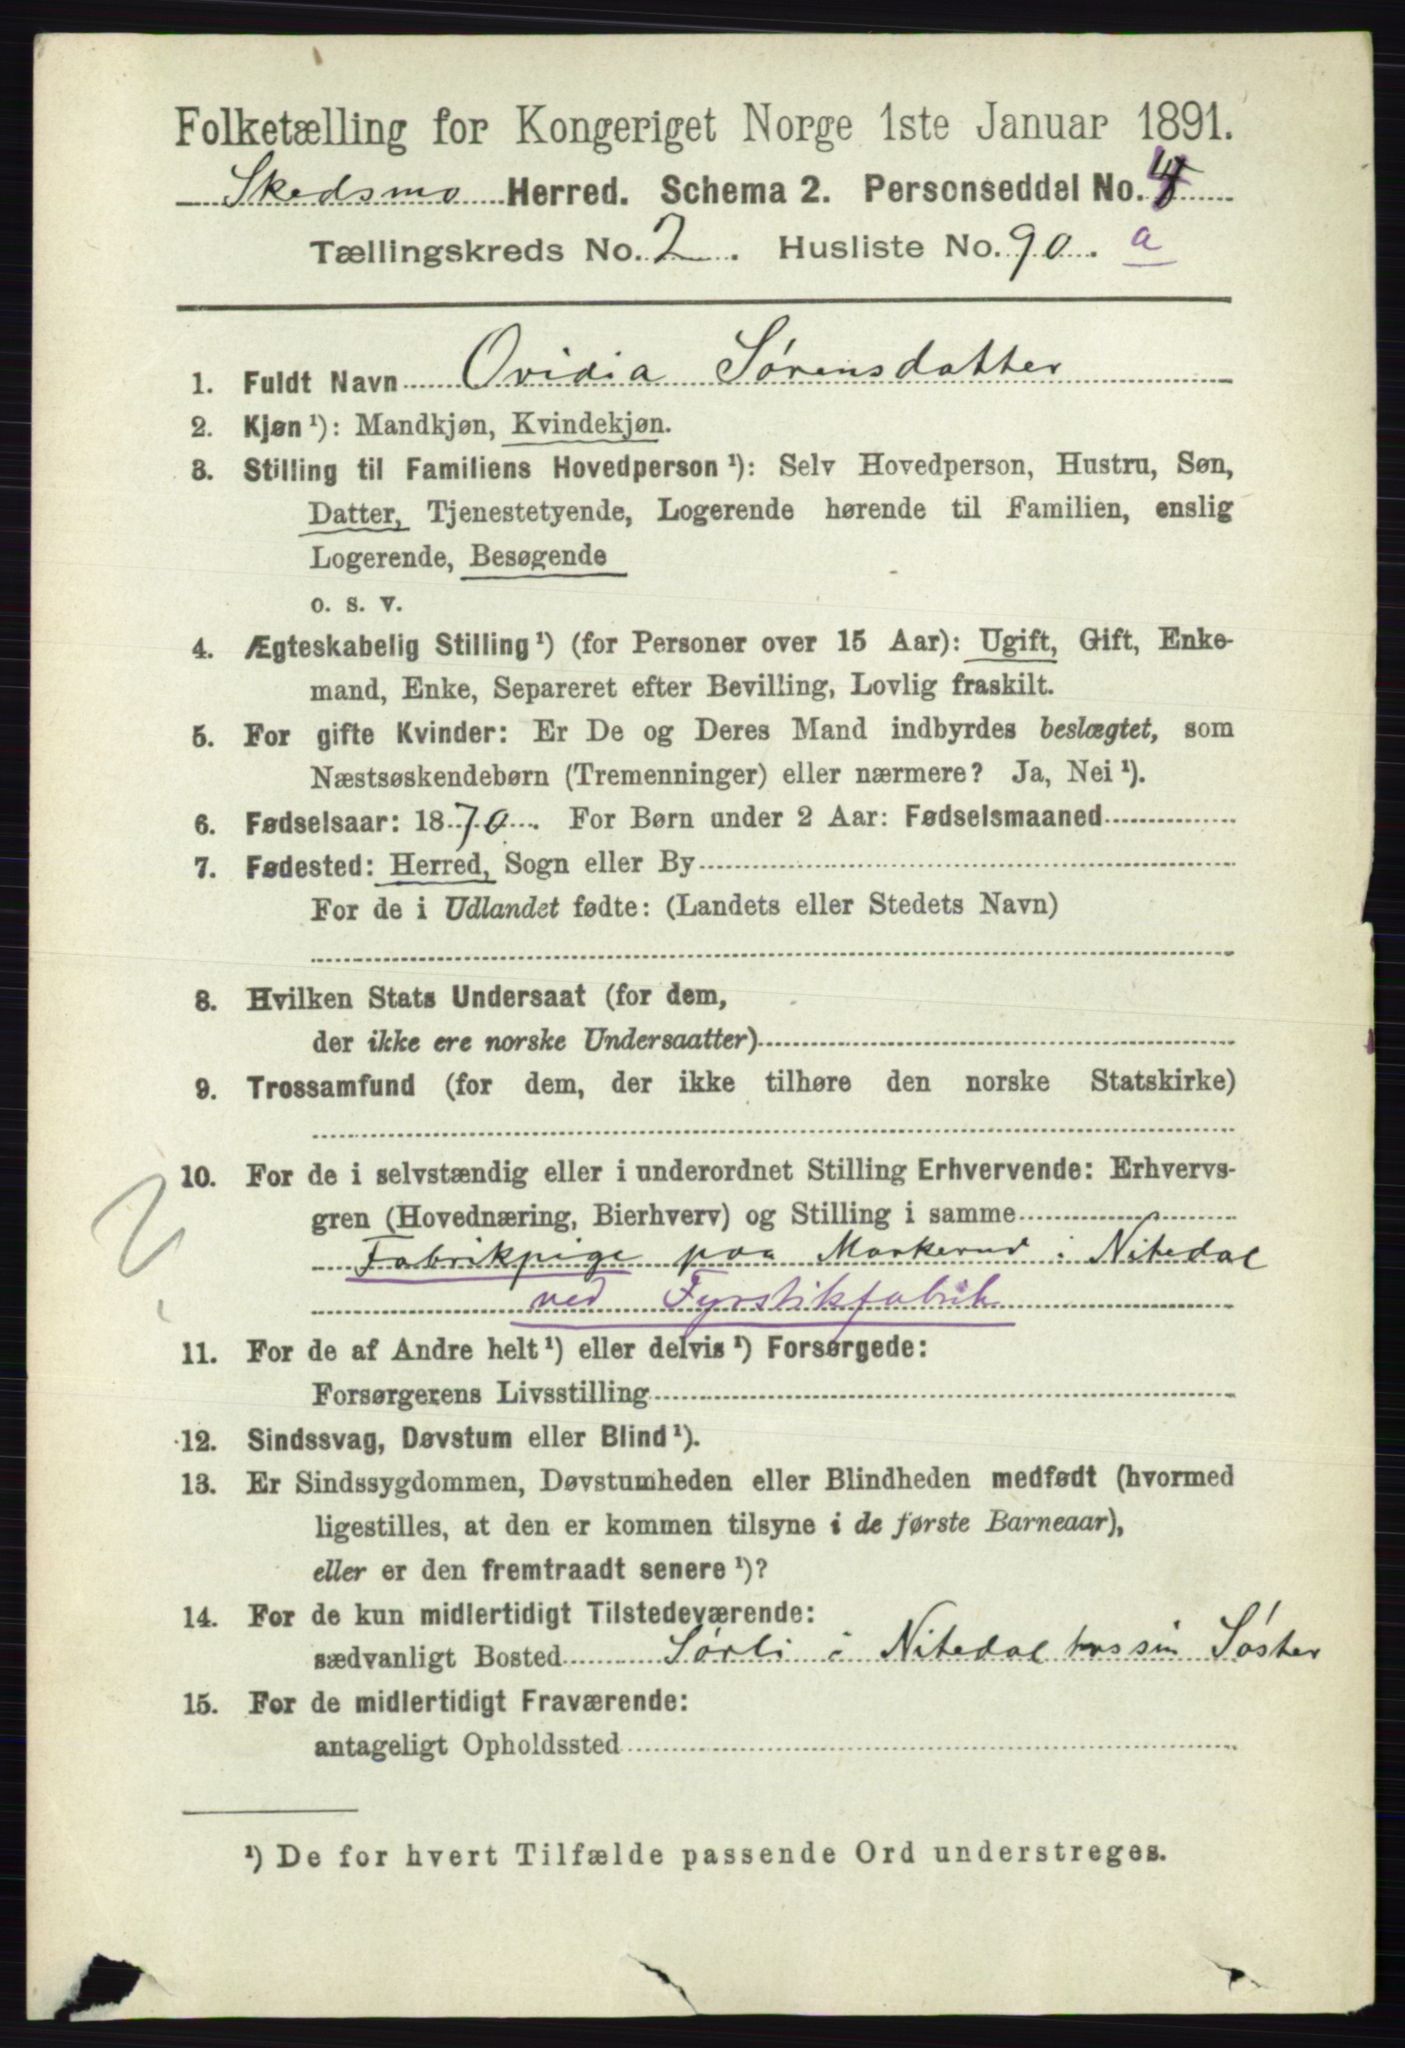 Folketælling for Kongeriget Norge 1ste Januar 1891.
Skedsmo Herred. Schema 2. Personseddel No. 4
Tællingskreds No. 2. Husliste No. 90. a
1. Fuldt Navn Ovidia Sørensdatter
2. Kjøn ¹): Mandkjøn, Kvindekjøn.
3. Stilling til Familiens Hovedperson ¹): Selv Hovedperson, Hustru, Søn,
Datter, Tjenestetyende, Logerende hørende til Familien, enslig
Logerende, Besøgende
o. s. v.
4. Ægteskabelig Stilling ¹) (for Personer over 15 Aar): Ugift, Gift, Enke-
mand, Enke, Separeret efter Bevilling, Lovlig fraskilt.
5. For gifte Kvinder: Er De og Deres Mand indbyrdes beslægtet, som
Næstsøskendebørn (Tremenninger) eller nærmere? Ja, Nei ¹).
6. Fødselsaar: 1870. For Børn under 2 Aar: Fødselsmaaned
7. Fødested: Herred, Sogn eller By
For de i Udlandet fødte: (Landets eller Stedets Navn)
8. Hvilken Stats Undersaat (for dem,
der ikke ere norske Undersaatter)
9. Trossamfund (for dem, der ikke tilhøre den norske Statskirke)
10. For de i selvstændig eller i underordnet Stilling Erhvervende: Erhvervs-
gren (Hovednæring, Bierhverv) og Stilling i samme
Fabrikpige paa Markerud i Nitedal
ved Fyrstikfabrik
11. For de af Andre helt ¹) eller delvis ¹) Forsørgede:
Forsørgerens Livsstilling
12. Sindssvag, Døvstum eller Blind ¹).
13. Er Sindssygdommen, Døvstumheden eller Blindheden medfødt (hvormed
ligestilles, at den er kommen tilsyne i de første Barneaar),
eller er den fremtraadt senere ¹)?
14. For de kun midlertidigt Tilstedeværende:
sædvanligt Bosted Sørli i Nitedal hos sin Søster
15. For de midlertidigt Fraværende:
antageligt Opholdssted
¹) De for hvert Tilfælde passende Ord understreges.